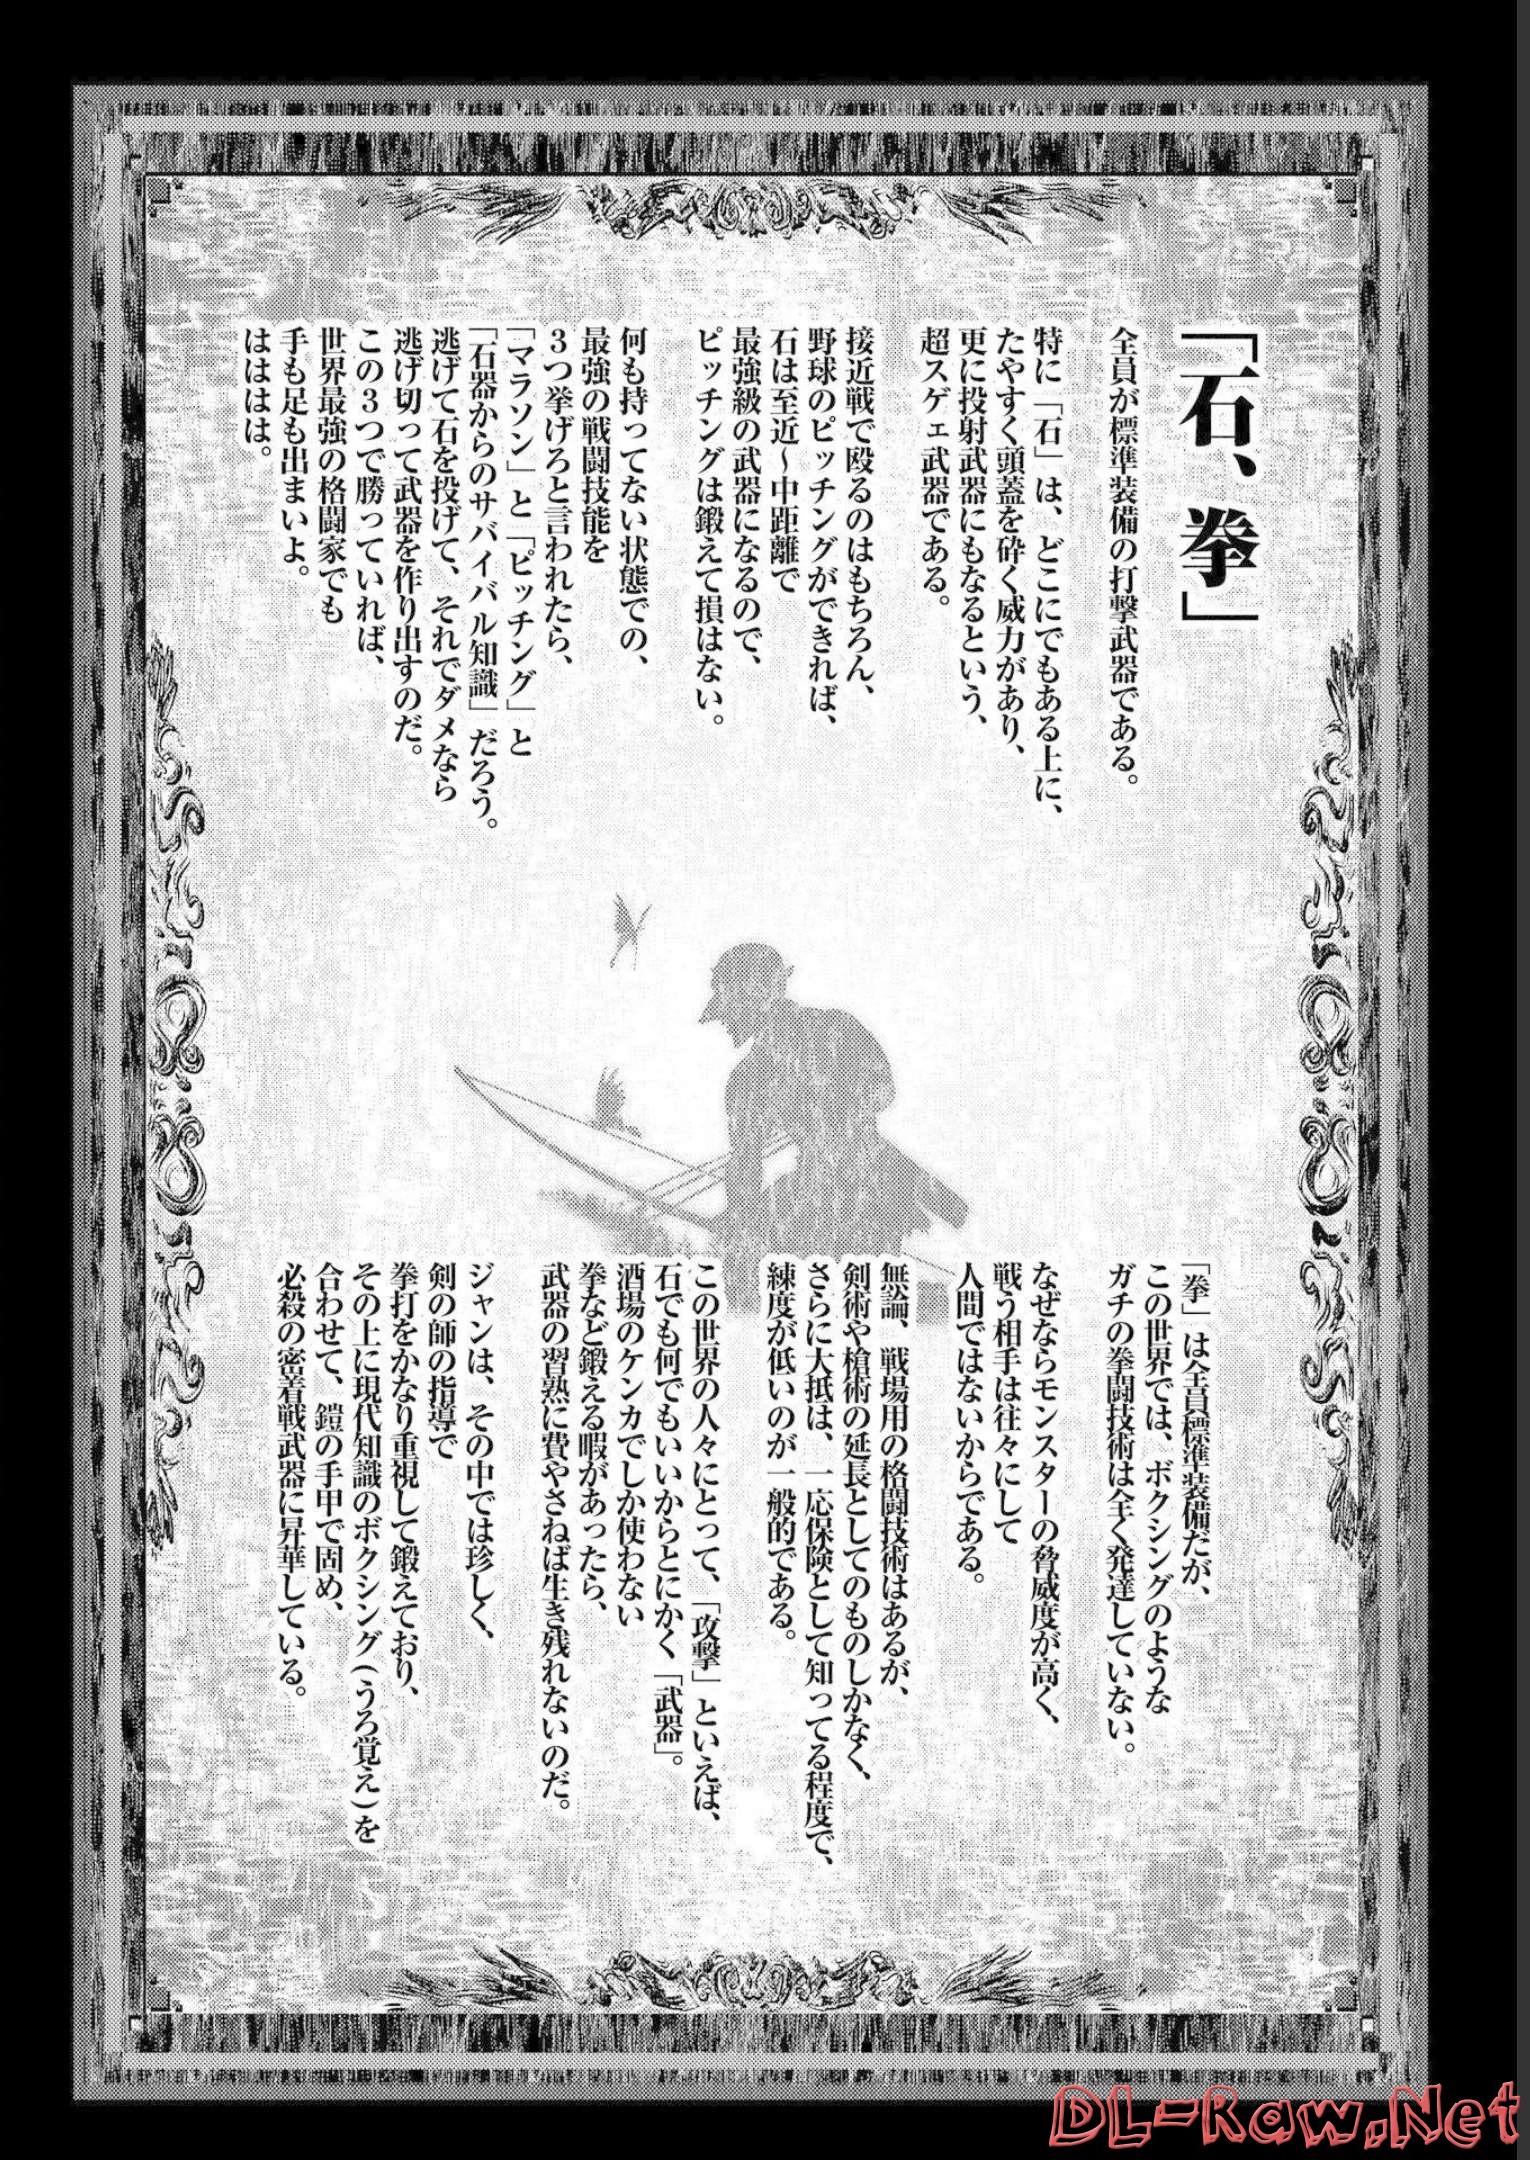 「石、拳」
全員が標準装備の打撃武器である。
特に「石」は、どこにでもある上に、
たやすく頭蓋を砕く威力があり、
更に投射武器にもなるという、
超スゲェ武器である。
接近戦で殴るのはもちろん、
野球のピッチングができれば、
石は至近～中距離で
最強級の武器になるので、
ピッチングは鍛えて損はない。
何も持ってない状態での、
最強の戦闘技能を
３つ挙げろと言われたら、
「マラソン」と「ピッチング」と
「石器からのサバイバル知識」だろう。
逃げて石を投げて、それでダメなら
逃げ切って武器を作り出すのだ。
この３つで勝っていれば、
世界最強の格闘家でも
手も足も出まいよ。
はははは。
「拳」は全員標準装備だが、
この世界では、ボクシングのような
ガチの拳闘技術は全く発達していない。
なぜならモンスターの脅威度が高く、
戦う相手は往々にして
人間ではないからである。
無論、戦場用の格闘技術はあるが、
剣術や槍術の延長としてのものしかなく、
さらに大抵は、一応保険として知ってる程度で、
練度が低いのが一般的である。
この世界の人々にとって、「攻撃」といえば、
石でも何でもいいからとにかく「武器」。
酒場のケンカでしか使わない
拳など鍛える暇があったら、
武器の習熟に費やさねば生き残れないのだ。
ジャンは、その中では珍しく、
剣の師の指導で
拳打をかなり重視して鍛えており、
その上に現代知識のボクシング(うろ覚え)を
合わせて、鎧の手甲で固め、
必殺の密着戦武器に昇華している。
DL-Raw.Net